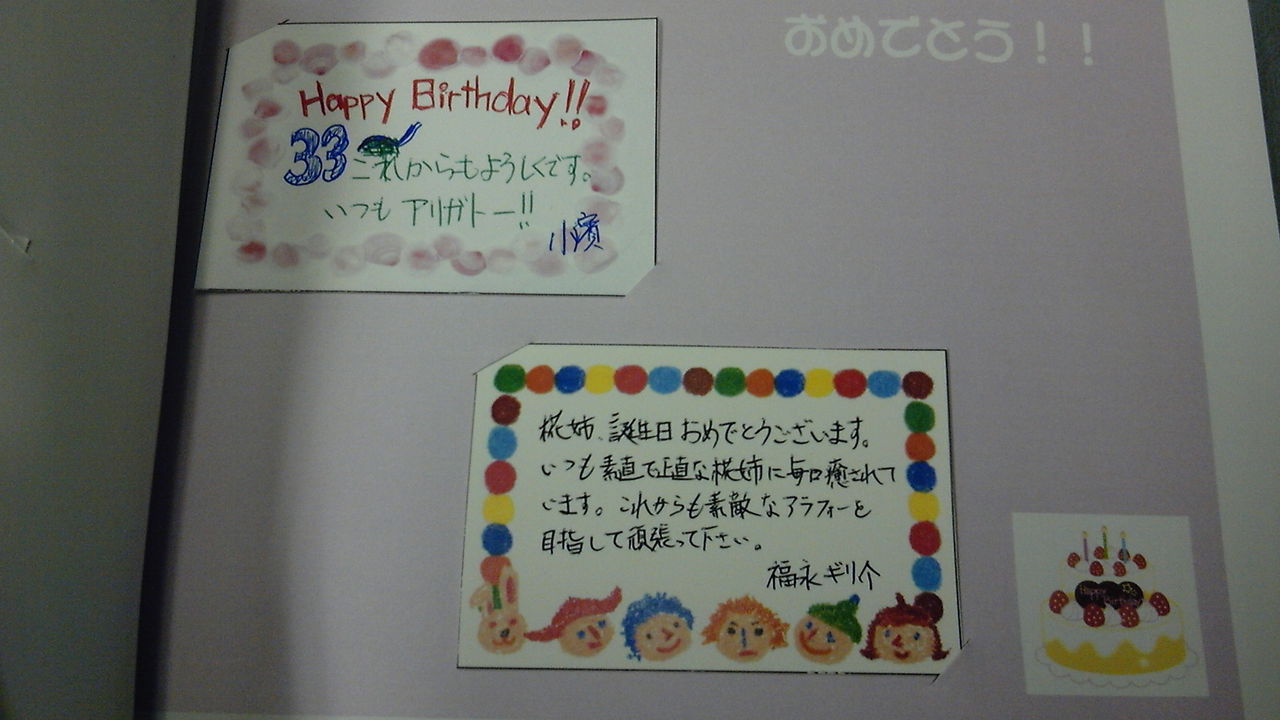 おめでとう！！
Happy Birthday!!
33 これからもよろしくです。
いつも アリガトー!!
小濱
椛姉、誕生日おめでとうございます。
いつも素直で正直な椛姉に毎日癒されて
います。これからも素敵なアラフォーを
目指して頑張って下さい。
福永ギリ介
Happy Birthday